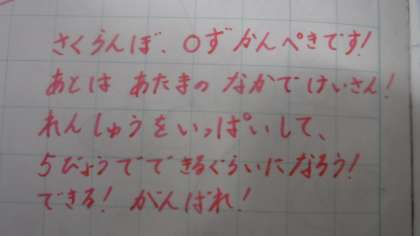 さくらんぼ、○ず かんぺきです!
あとは あたまの なかで けいさん!
れんしゅうをいっぱいして、
5びょうでできるぐらいになろう!
できる! がんばれ!